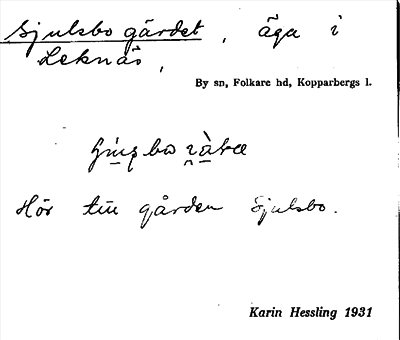 Sjulsbo gärdet, äga i
Leknäs,
By sn, Folkare hd, Kopparbergs l.
Hör till gården Sjulsbo.
Karin Hessling 1931